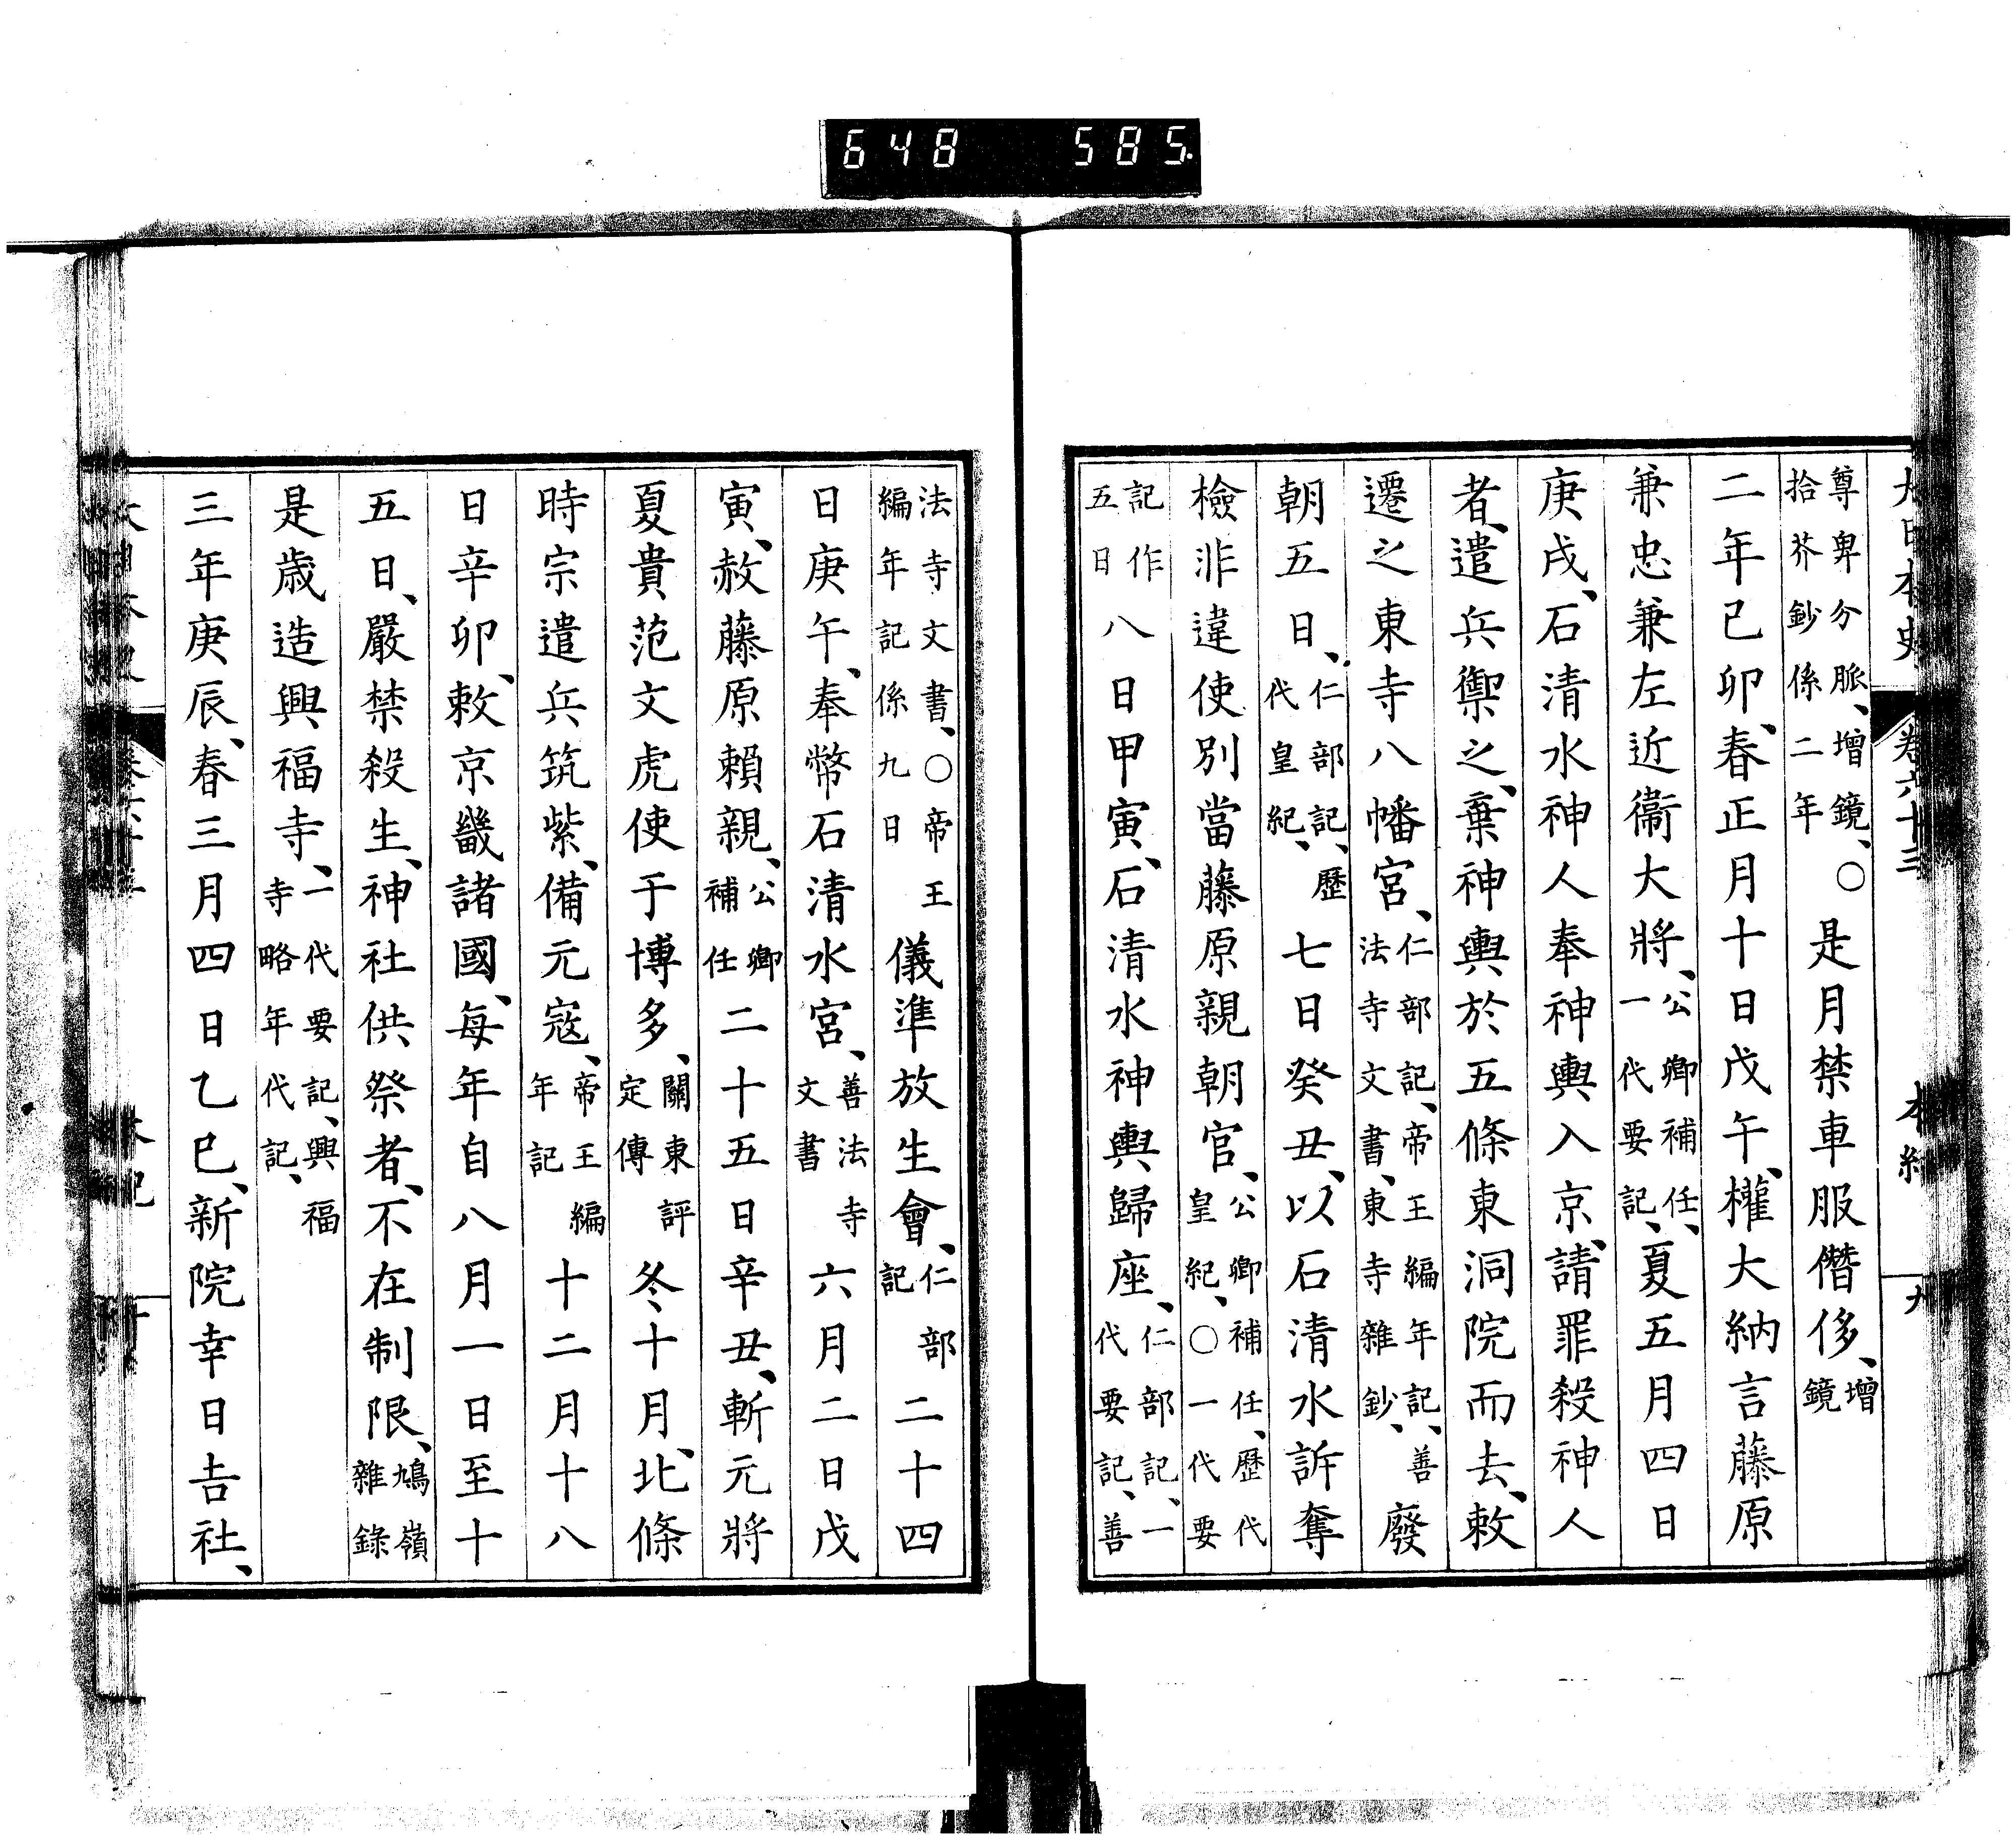 648 585.
大日本史 卷六十三 本紀 九
尊卑分脈、增鏡、○拾芥鈔係二年 是月禁車服僭侈、增鏡
二年己卯、春正月十日戊午、權大納言藤原
兼忠兼左近衞大將、公卿補任、一代要記、夏五月四日
庚戌、石清水神人奉神輿入京、請罪殺神人
者、遣兵禦之、棄神輿於五條東洞院而去、敕
遷之東寺八幡宮、仁部記、帝王編年記、善法寺文書、東寺雜鈔、廢
朝五日、仁部記、歷代皇紀、七日癸丑、以石清水訴奪
檢非違使別當藤原親朝官、公卿補任、歷代皇紀、○一代要
記作五日 八日甲寅、石清水神輿歸座、仁部記、一代要記、善
法寺文書、○帝王編年記係九日 儀準放生會、仁部記 二十四
日庚午、奉幣石清水宮、善法寺文書 六月二日戊
寅、赦藤原賴親、公卿補任 二十五日辛丑、斬元將
夏貴范文虎使于博多、關東評定傳 冬、十月、北條
時宗遣兵筑紫、備元寇、帝王編年記 十二月十八
日辛卯、敕京畿諸國、每年自八月一日至十
五日、嚴禁殺生、神社供祭者、不在制限、鳩嶺雜錄
是歲造興福寺、一代要記、興福寺略年代記、
三年庚辰、春三月四日乙巳、新院幸日吉社、